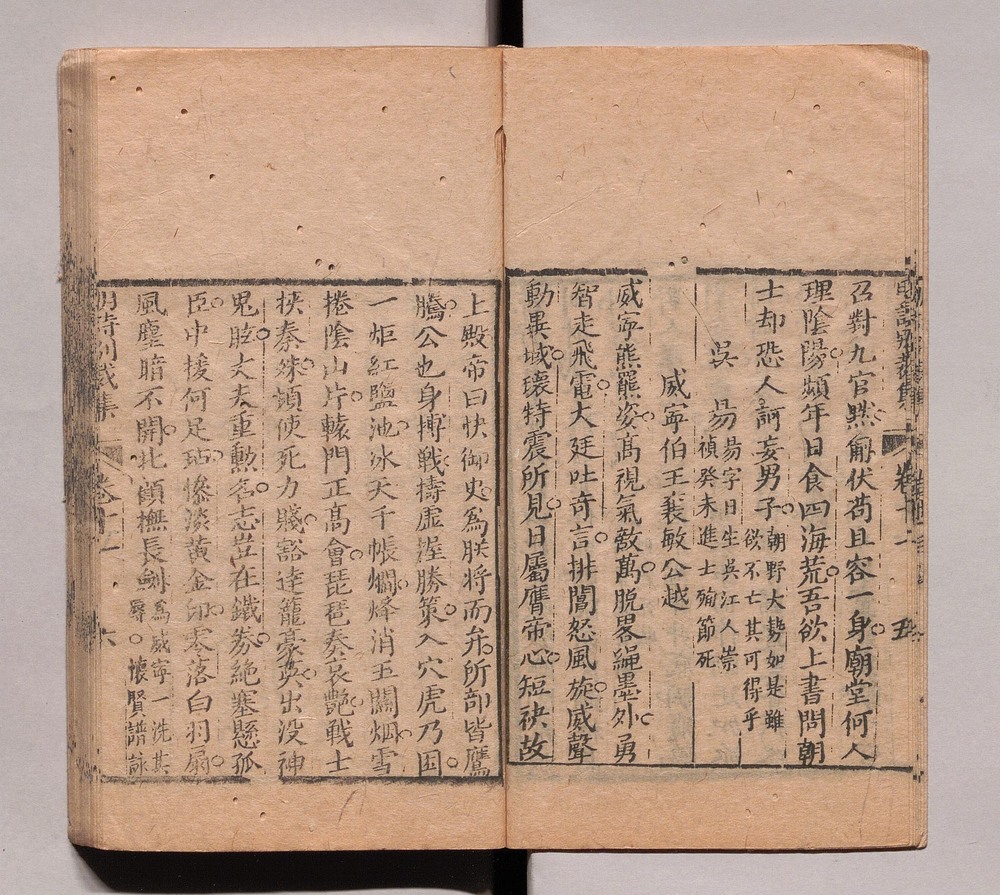 召對九官黙俯伏苟且容一身廟堂何人
理陰陽頻年日食四海荒吾欲上書問朝
士却恐人訶妄男子朝野大勢如是雖
欲不亡其可得乎
吳昜昜字日生吳江人崇
禎癸未進士殉節死
威寧伯王襄敏公越
威寧熊羆姿高視氣敵萬脫畧繩墨外勇
智走飛電大廷吐奇言排闥怒風旋威聲
動異域瓌特震所見日屬膺帝心短袂故
上殿帝曰快御史爲朕將而弁所部皆鷹
騰公也身搏戰擣虛渥勝策入穴虎乃困
一炬紅鹽池冰天千帳爛烽消玉關烟雪
捲陰山片轅門正高會琵琶奏哀艷戰士
挾秦姝頓使死力賤豁達籠豪英出没神
鬼眩丈夫重勲名志豈在鐵券絶塞懸孤
臣中援何足玷慘淡黄金印零落白羽扇
風塵暗不開北顧撫長劍爲威寧一洗其
辱。懐賢譜詠
明詩别裁集
卷十一
六
明詩别裁集
卷十一
五